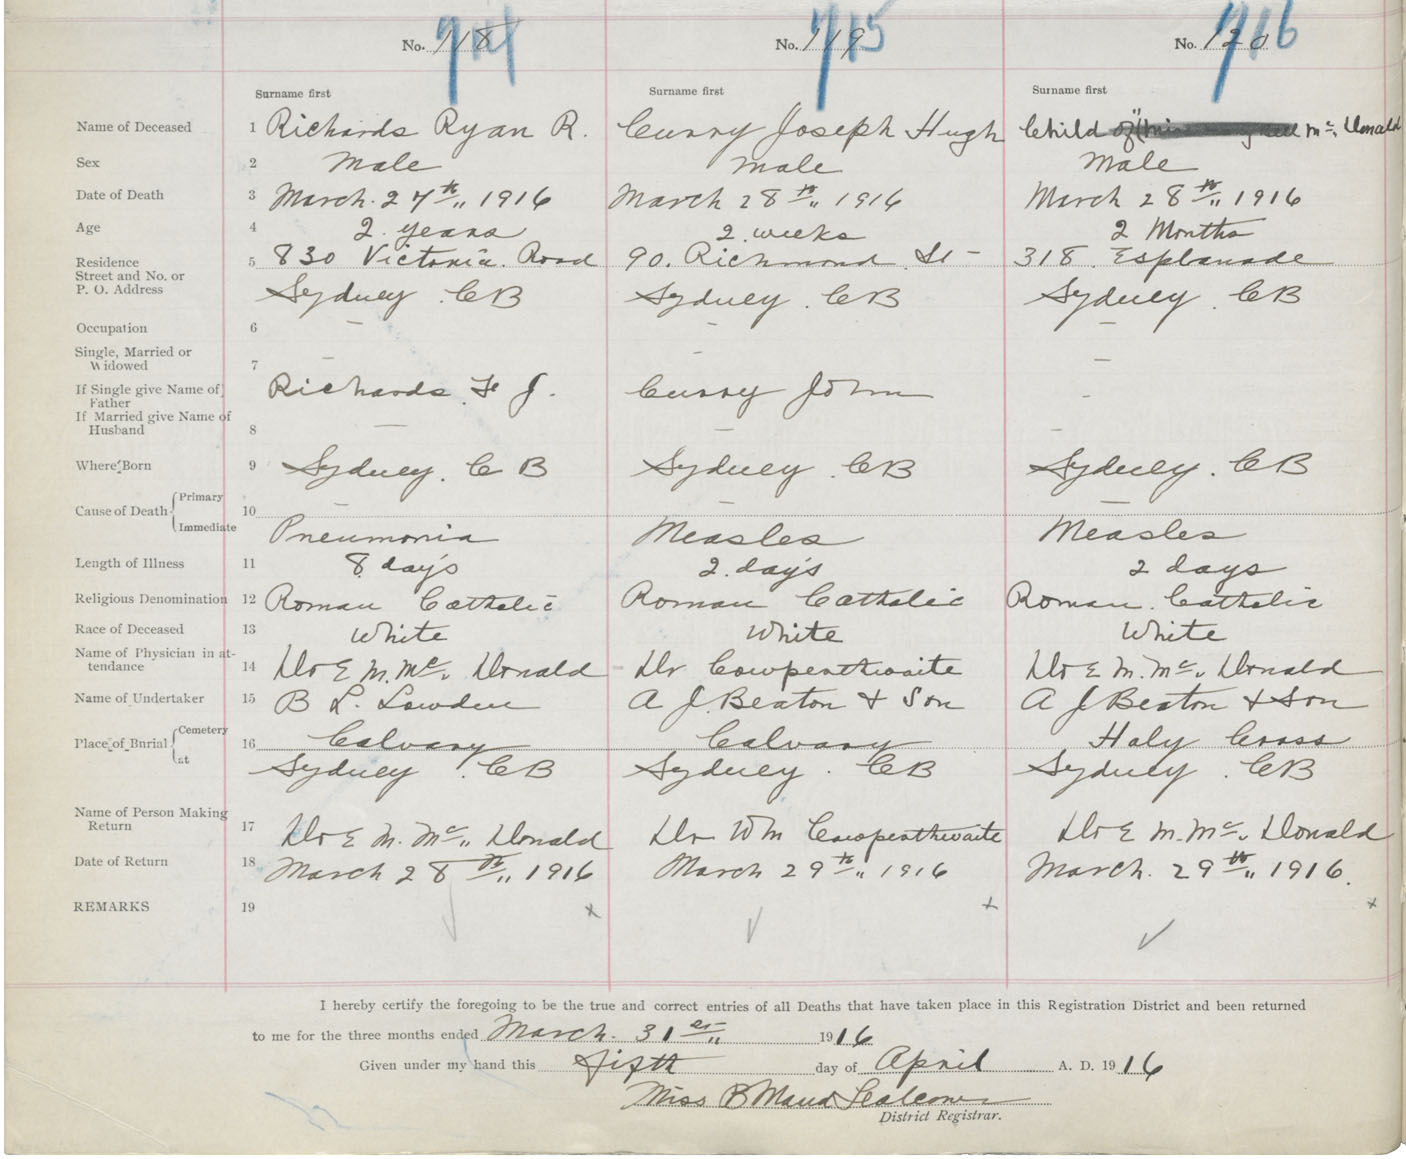 No. 118 714 No. 119 715 No. 120 716
Surname first Surname first Surname first
Name of Deceased 1 Richards Ryan R. Curry Joseph Hugh Child of Mc Donald
Sex 2 Male Male Male
Date of Death 3 March. 27th, 1916 March 28th, 1916 March 28th, 1916
Age 4 2 years 2 weeks 2 Months
Residence
Street and No. or 5 830 Victoria Road 90. Richmond St 318 Esplanade
P. O. Address Sydney. CB Sydney. CB Sydney. CB
Occupation 6 – – –
Single, Married or
Widowed 7 – – –
If Single give Name of Richards F J. Curry John -
Father
If Married give Name of
Husband 8 – – –
Where Born 9 Sydney. C B Sydney. CB Sydney. CB
Primary – – –
Cause of Death 10
Immediate Pneumonia Measles Measles
Length of Illness 11 8 days 2 days 2 days
Religious Denomination 12 Roman Catholic Roman Catholic Roman Catholic
Race of Deceased 13 White White White
Name of Physician in at-
tendance 14 Dr E M. Mc Donald Dr Cowperthwaite Dr E M. Mc Donald
Name of Undertaker 15 B L. Lowden A J. Beaton & Son A J Beaton & Son
Cemetery
Place of Burial 16 Calvary Calvary Holy Cross
at Sydney. CB Sydney. CB Sydney. CB
Name of Person Making
Return 17 Dr E M. Mc Donald Dr Wm Cowperthwaite Dr E M. Mc Donald
Date of Return 18 March 28th, 1916 March 29th, 1916 March. 29th, 1916.
REMARKS 19 x x x
I hereby certify the foregoing to be the true and correct entries of all Deaths that have taken place in this Registration District and been returned
to me for the three months ended March. 31st 1916
Given under my hand this fifth day of April A. D. 1916
Miss B Maud Falconer
District Registrar.